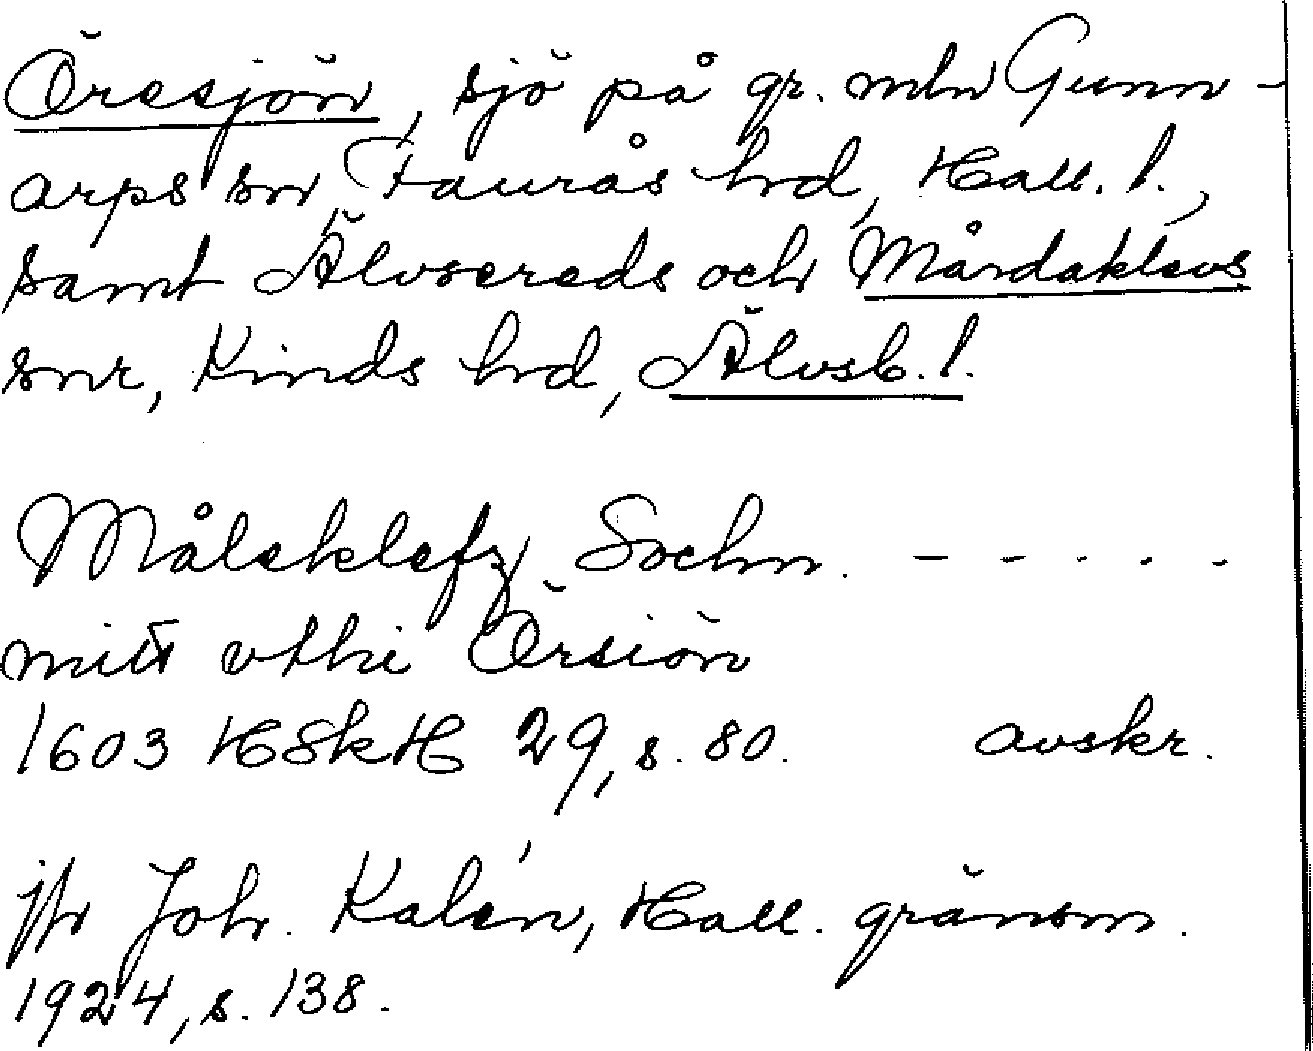 Öresjön, sjö på gr. mln Gunn-
arps sn, Faurås hd, Hall. l.,
samt Älvsereds och Mårdaklevs
snr, Kinds hd, Älvsb. l.
Måleklefz Sochn. - - - - -
mitt vthi Örsiön
1603 HSkH 29, s. 80. avskr.
jfr Joh. Kalén, Hall. gränsm.
1924, s. 138.